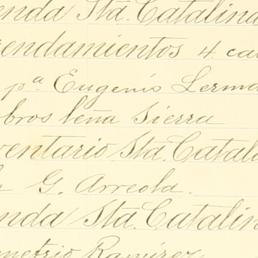 enda Sta. Catalina
endamientos 4 ca
pª Eugenio Lerma
bros leña Sierra
ventario Sta. Catal
G. Arreola.
enda Sta. Catalin
metrio Ramírez